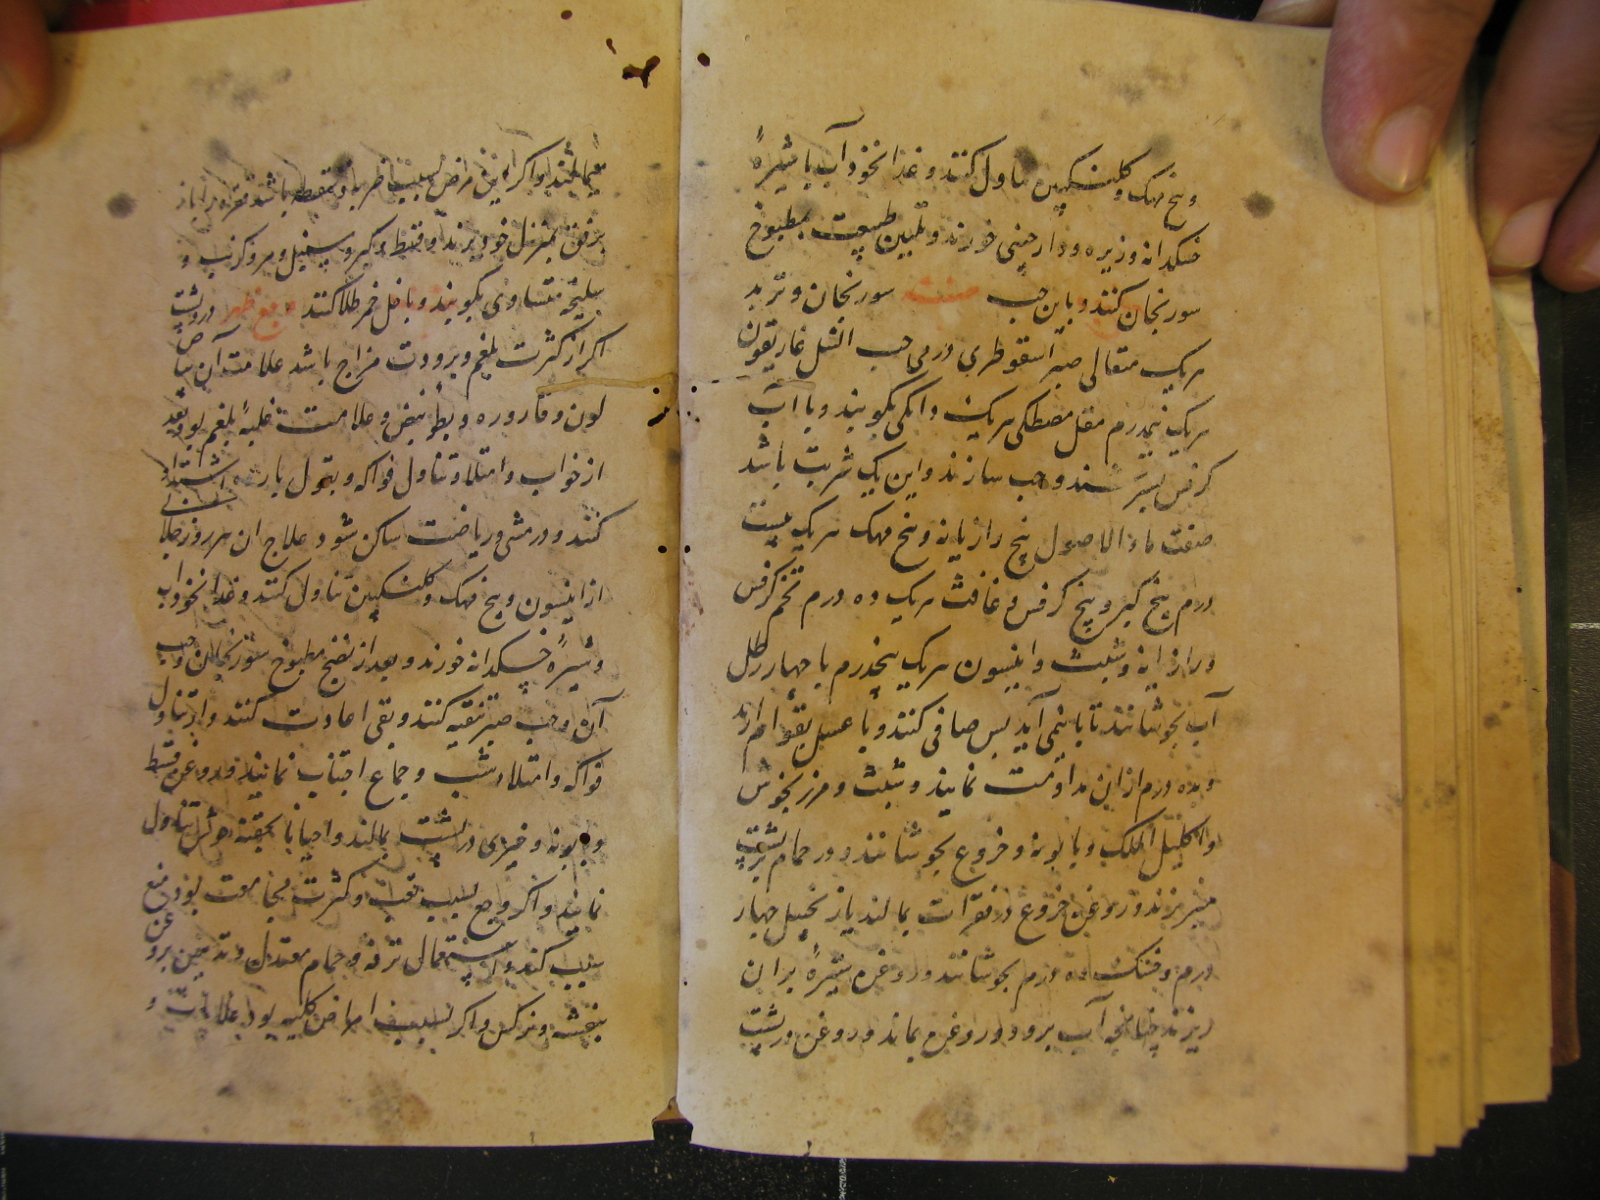 و بیخ مهک و کلنکبین تناول کنند و غذا نخود آب با شیرهٔ
خسکدانه و زیره و دارچینی خورند و تلیین طبیعت بمطبوخ
سورنجان کنند و باین حب صفتـه سورنجان و تربد
هریک مثقالی صبر اسقوطری درمی حب النیل غاریقون
هریک نیمدرم مقل مصطکی هریک دانکی بکوبند و با آب
کرفس بسرشند و حب سازند و این یک شربت باشد
صفت ماء الاصول بیخ رازیانه و بیخ مهک هریک بیست
درم بیخ کبر و بیخ کرفس و غافث هریک ده درم تخم کرفس
و رازیانه و شبت و انیسون هریک پنجدرم با چهار رطل
آب بجوشانند تا با نیمی آید پس صافی کنند و با عسل بقوام آرند
و ده درم از این مداومت نمایند و شبت و مرزنجوش
و اکلیل الملک و بابونه و خروع بجوشانند و در حمام بر پشت
میریزند و روغن خروع در فقرات بمالند یا زنجبیل چهار
درم و خسک ده درم بجوشانند و روغن شیره بر آن
ریزند چنانچه آب برود و روغن بماند و روغن در پشت
میمالند و اگر این مرض بسبب ضربه و سقطه باشد فقرات را باز
برفق بمنزل خود برند و قسط و کبر و سنبل و مر و کرنب و
سلیخه متساوی بکوبند و با خل خمر طلا کنند وجع ظهر درد پشت
اگر از کثرت بلغم و برودت مزاج باشد علامت آن بیاض
لون و قاروره و بطؤ نبض و علامت غلبهٔ بلغم بود و بعد
از خواب و امتلا و تناول فواکه و بقول بارده اشتداد
کند و در مشی و ریاضت ساکن شود علاج ان هر روز جلابی
از انیسون و بیخ مهک و کلنکبین تناول کنند و غذا نخوداب
و شیرهٔ خسکدانه خورند و بعد از نضج مطبوخ سورنجان و حب
آن و حب صبر تنقیه کنند و بقی اعادت کنند و از تناول
فواکه و امتلاء شب و جماع اجتناب نمایند و روغن قسط
و بابونه و خیری در پشت بمالند و احیانا بحقنه تناول
نمایند و اگر وجع بسبب تعب و کثرت مجامعت بود منع
سبب کنند و استعمال ترفه و حمام معتدل و تدهین بروغن
بنفشه و نرکس و اگر بسبب امراض کلیه بود بعلامات و